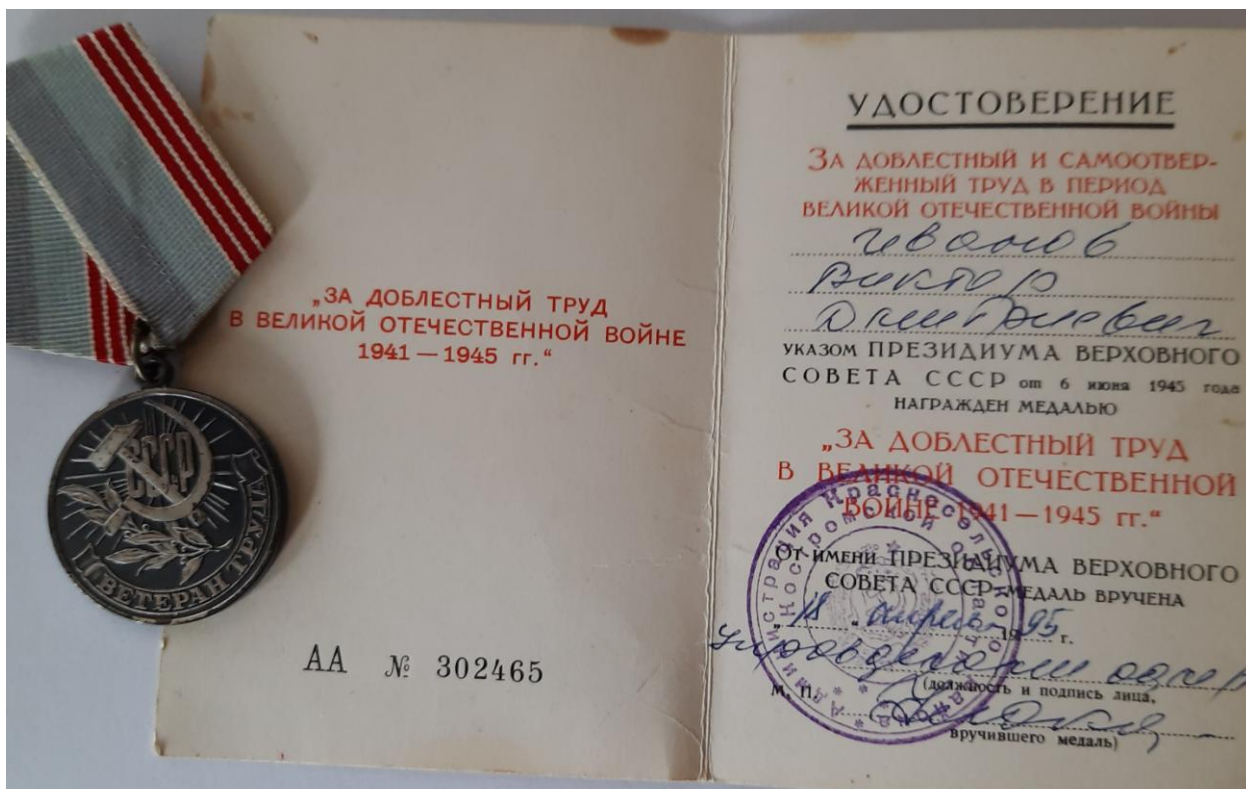 СССР
ВЕТЕРАН ТРУДА
„ЗА ДОБЛЕСТНЫЙ ТРУД
В ВЕЛИКОЙ ОТЕЧЕСТВЕННОЙ ВОЙНЕ
1941 — 1945 гг.“
АА № 302465
УДОСТОВЕРЕНИЕ
ЗА ДОБЛЕСТНЫЙ И САМООТВЕР-
ЖЕННЫЙ ТРУД В ПЕРИОД
ВЕЛИКОЙ ОТЕЧЕСТВЕННОЙ ВОЙНЫ
Иванов
Виктор
Дмитриевич
УКАЗОМ ПРЕЗИДИУМА ВЕРХОВНОГО
СОВЕТА СССР от 6 июня 1945 года
НАГРАЖДЕН МЕДАЛЬЮ
„ЗА ДОБЛЕСТНЫЙ ТРУД
В ВЕЛИКОЙ ОТЕЧЕСТВЕННОЙ
ВОЙНЕ 1941—1945 гг.“
От имени ПРЕЗИДИУМА ВЕРХОВНОГО
СОВЕТА СССР МЕДАЛЬ ВРУЧЕНА
„18“ апреля 1995 г.
(должность и подпись лица,
М. П.
вручившего медаль)
Администрация Красносельского
Костромской области